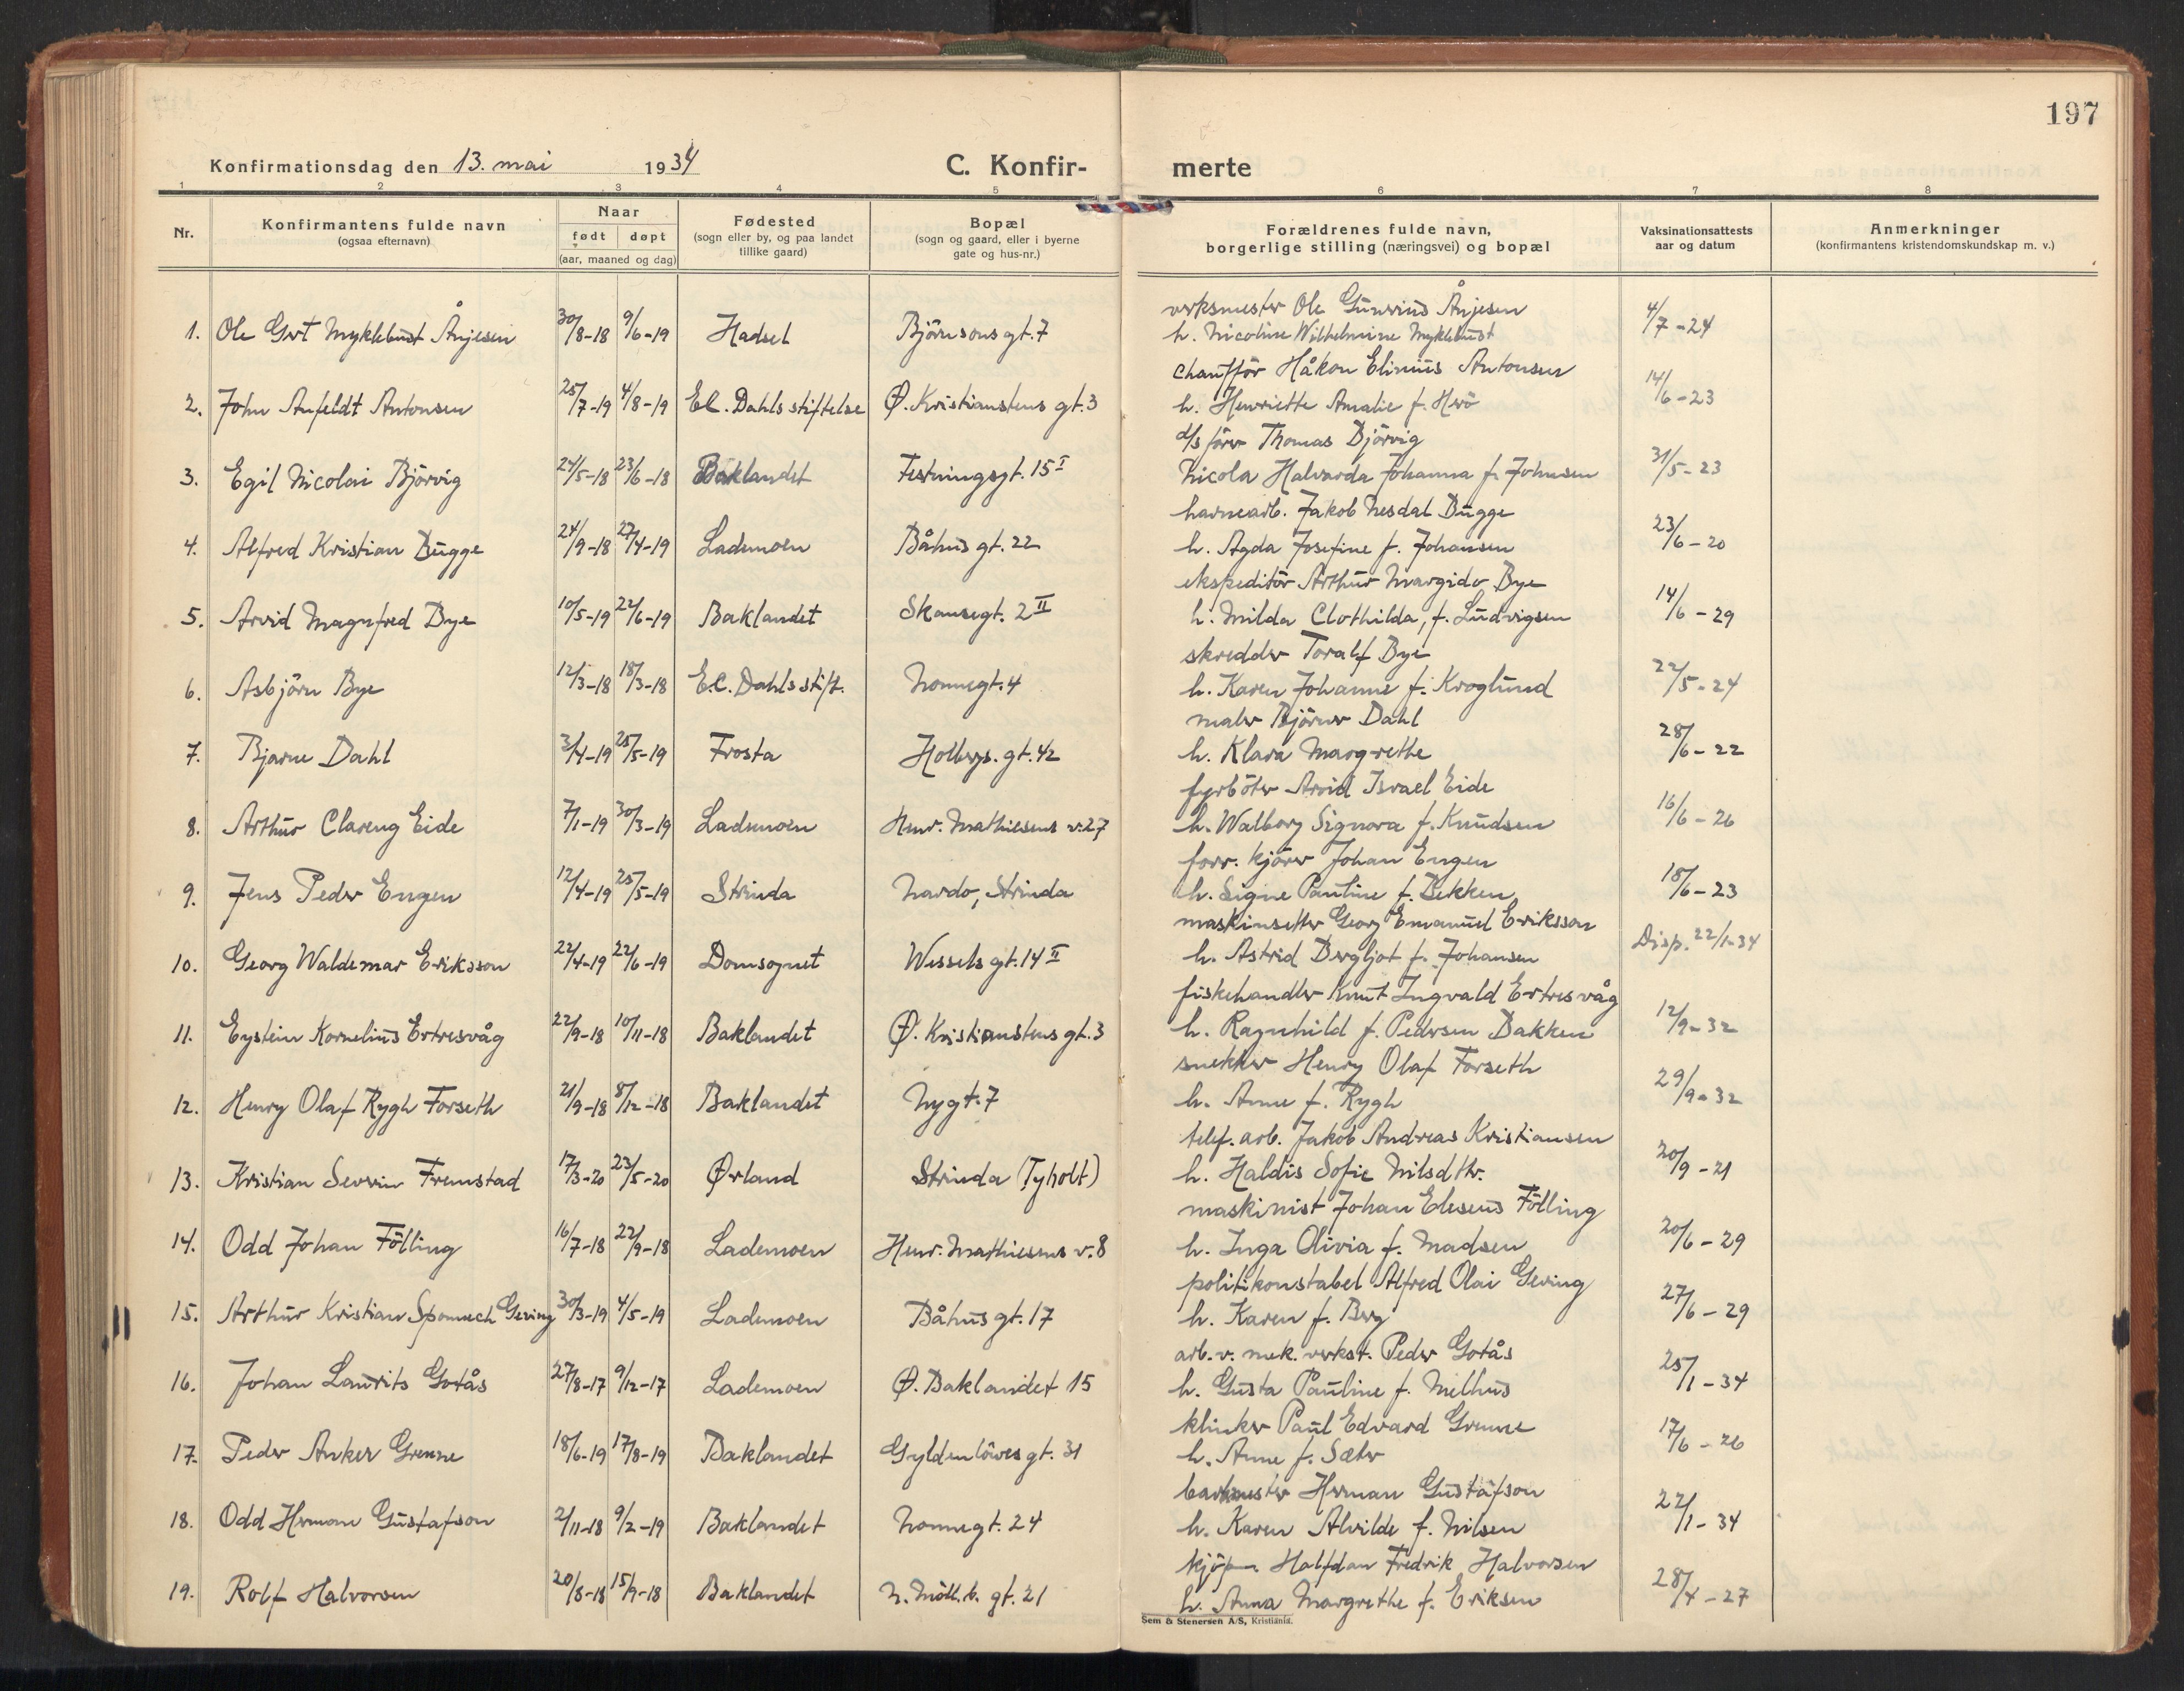 197
Konfirmationsdag den 13. mai 1934
C. Konfir-
merte
1 2 3 4 5 6 7 8
Nr.
Konfirmantens fulde navn
(ogsaa efternavn)
Naar
født døpt
(aar, maaned og dag)
Fødested
(sogn eller by, og paa landet
tillike gaard)
Bopæl
(sogn og gaard, eller i byerne
gate og hus-nr.)
Forældrenes fulde navn,
borgerlige stilling (næringsvei) og bopæl
Vaksinationsattests
aar og datum
Anmerkninger
(konfirmantens kristendomskundskap m. v.)
verksmester Ole Gunerius Ånjesen
1. Ole Gert Myklebust Ånjesen 30/8-18 9/6-19 Hadsel Björnsons gt. 7 h. Nicoline Wilhelmine Myklebust 4/7-24
chaufför Håkon Elinius Antonsen
2. John Anfeldt Antonsen 25/7-19 4/8-19 E.C. Dahls stiftelse Ø. Kristianstens gt. 3 h. Henriette Amalie f. Herö 14/6-23
d/s förer Thomas Björvig
3. Egil Nicolai Björvig 24/5-18 23/6-18 Baklandet Festningsgt. 15 I Nicola Halvarda Johanna f. Johnsen 31/5-23
havnearb. Jakob Nesdal Bugge
4. Alfred Kristian Bugge 24/9-18 27/4-19 Lademoen Båhus gt. 22 h. Agda Josefine f. Johansen 23/6-20
ekspeditör Arthur Margido Bye
5. Arvid Magnfred Bye 10/5-19 22/6-19 Baklandet Skansegt. 2 II h. Milda Clothilda, f. Ludvigsen 14/6-29
skredder Toralf Bye
6. Asbjörn Bye 12/3-18 18/3-18 E.C. Dahls stift. Nonnegt. 4 h. Karen Johanne f. Kroglund 22/5-24
maler Björner Dahl
7. Bjarne Dahl 3/4-19 25/5-19 Frosta Holbergs. gt. 42 h. Klara Margrethe 28/6-22
fyrböter Arvid Israel Eide
8. Arthur Clareng Eide 7/1-19 30/3-19 Lademoen Henr. Mathiesens v. 27 h. Walborg Signora f. Knudsen 16/6-26
forr. kjörer Johan Engen
9. Jens Peder Engen 12/4-19 25/5-19 Strinda Nardo, Strinda h. Signe Pauline f. Bekken 18/6-23
maskinsetter Georg Emanuel Eriksson
10. Georg Waldemar Eriksson 22/4-19 22/6-19 Domsognet Wessels gt. 14 II h. Astrid Bergljot f. Johansen Disp. 22/1-34
fiskehandler Knut Ingvald Ertresvåg
11. Eystein Kornelius Ertresvåg 22/9-18 10/11-18 Baklandet Ø. Kristianstens gt. 3 h. Ragnhild f. Pedersen Bakken 12/9-32
snekker Henry Olaf Forseth
12. Henry Olaf Rygh Forseth 21/9-18 8/12-18 Baklandet Nygt. 7 h. Anne f. Rygh 29/9-32
telef. arb. Jakob Andreas Kristiansen
13. Kristian Severin Fremstad 17/3-20 23/5-20 Ørland Strinda (Tyholt) h. Haldis Sofie Nilsdtr. 20/9-21
maskinist Johan Eleseus Fölling
14. Odd Johan Fölling 16/7-18 22/9-18 Lademoen Henr. Mathiesens v. 8 h. Inga Olivia f. Madsen 20/6-29
politikonstabel Alfred Olai Geving
15. Arthur Kristian Sponnech Geving 30/3-19 4/5-19 Lademoen Båhus gt. 17 h. Karen f. Berg 27/6-29
arb. v. mek. verkst. Peder Gotås
16. Johan Laurits Gotås 27/8-17 9/12-17 Lademoen Ø. Baklandet 15 h. Gusta Pauline f. Melhus 25/1-34
klinker Paul Edvard Grenne
17. Peder Anker Grenne 18/6-19 17/8-19 Baklandet Gyldenlöves gt. 31 h. Anne f. Sæter 17/6-26
Herman Gustafson
18. Odd Herman Gustafson 2/11-18 9/2-19 Baklandet Nonnegt. 24 h. Karen Alvilde f. Nilsen 22/1-34
kjöpm. Halfdan Fredrik Halvorsen
19. Rolf Halvorsen 20/8-18 15/9-18 Baklandet N. Möll.b. gt. 21 h. Anna Margrethe f. Eriksen 28/4-27
Sem & Stenersen A/S, Kristiania.